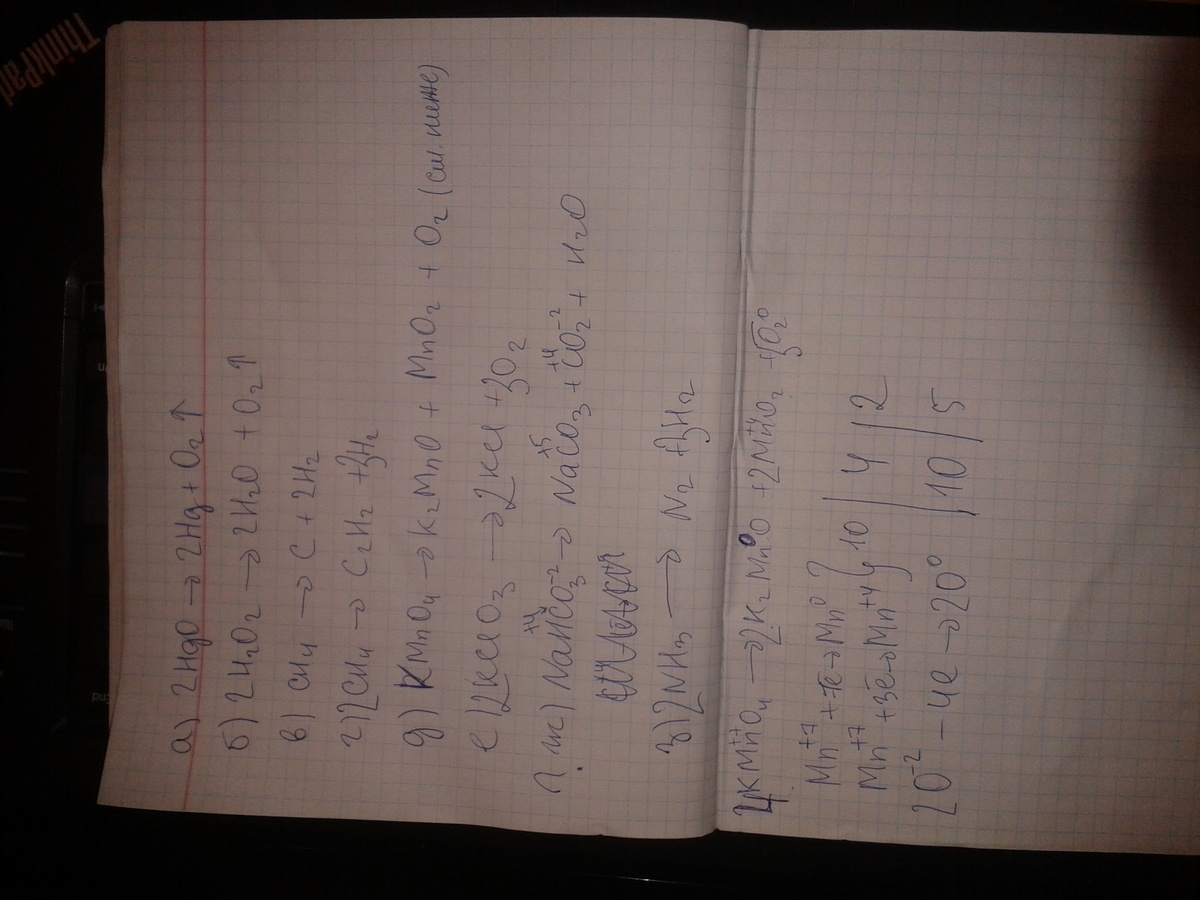 ThinkPad
а) 2HgO → 2Hg + O₂↑
б) 2H₂O₂ → 2H₂O + O₂↑
в) CH₄ → C + 2H₂
г) 2CH₄ → C₂H₂ + 3H₂
д) KMnO₄ → K₂MnO + MnO₂ + O₂ (см. ниже)
е) 2KClO₃ → 2KCl + 3O₂
? ж) NaH⁺⁴CO₃⁻² → Na⁺⁵CO₃ + ⁺⁴CO₂⁻² + H₂O
з) 2NH₃ → N₂ + 3H₂
4KMn⁺⁷O₄ → 2K₂Mn⁰O + 2Mn⁺⁴O₂ + 5O₂⁰
Mn⁺⁷ + 7e → Mn⁰ } 10 | 4 | 2
Mn⁺⁷ + 3e → Mn⁺⁴
2O⁻² - 4e → 2O⁰ | 10 | 5